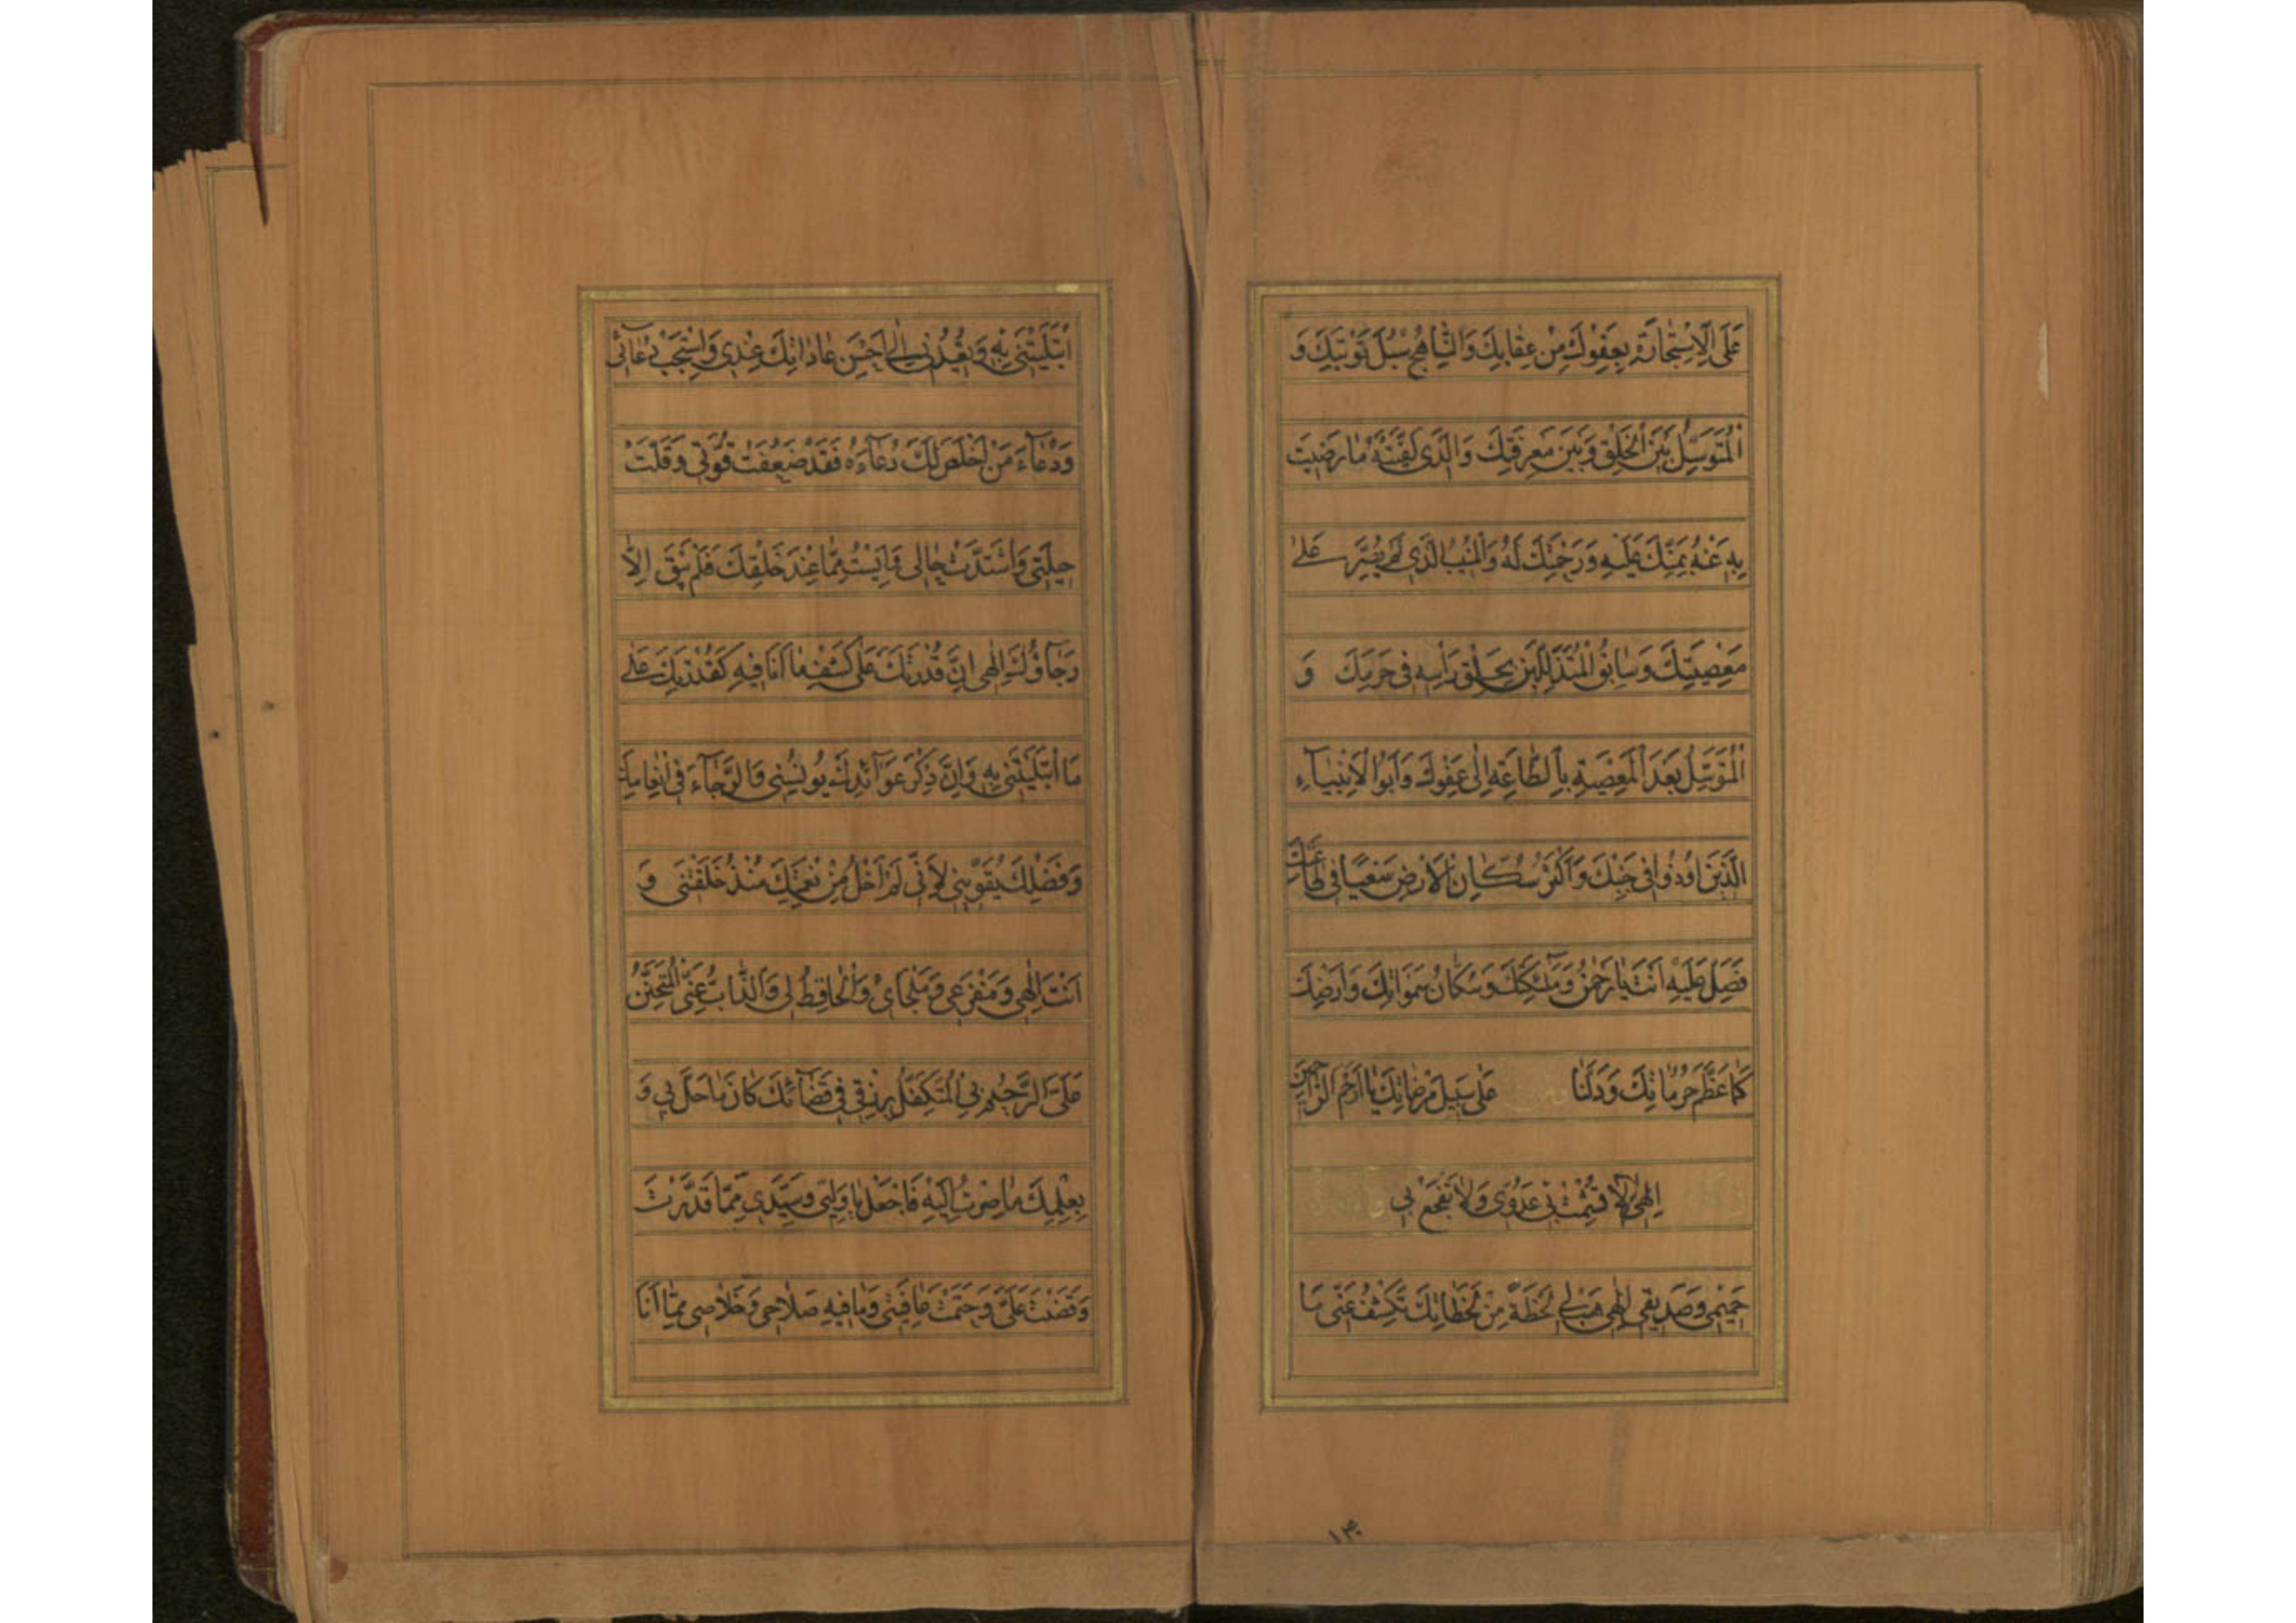 عَلَى الْاِسْتِجَارَةِ بِعَفْوِكَ مِنْ عِقَابِكَ وَالنَّاهِجُ سُبُلَ تَوْبَتِكَ وَ
الْمُتَوَسِّلُ بَيْنَ الْخَلْقِ وَبَيْنَ مَعْرِفَتِكَ وَالَّذِي لَقَّنْتَهُ مَا رَضِيتَ
بِهِ عَنْهُ بِمَنِّكَ عَلَيْهِ وَرَحْمَتِكَ لَهُ وَالْمُنِيبُ الَّذِي لَمْ يُصِرَّ عَلَى
مَعْصِيَتِكَ وَسَابِقُ الْمُتَذَلِّلِينَ بِحَلْقِ رَأْسِهِ فِي حَرَمِكَ وَ
الْمُتَوَسِّلُ بَعْدَ الْمَعْصِيَةِ بِالطَّاعَةِ اِلَى عَفْوِكَ وَاَبُو الْاَنْبِيَآءِ
الَّذِينَ اُوذُوا فِي جَنْبِكَ وَاَكْثَرُ سُكَّانِ الْاَرْضِ سَعْيًا فِي طَاعَتِكَ
فَصَلِّ عَلَيْهِ اَنْتَ يَا رَحْمٰنُ وَمَلٰٓئِكَتُكَ وَسُكَّانُ سَمٰوَاتِكَ وَاَرْضِكَ
كَمَا عَظَّمَ حُرُمَاتِكَ وَدَلَّنَا عَلَى سَبِيلِ مَرْضَاتِكَ يَا اَرْحَمَ الرَّاحِمِينَ
اِلٰهِي لَا تُشْمِتْ بِي عَدُوِّي وَلَا تُفْجِعْ بِي
حَمِيمِي وَصَدِيقِي اِلٰهِي هَبْ لِي لَحْظَةً مِنْ لَحَظَاتِكَ تَكْشِفُ عَنِّي مَا
ابْتَلَيْتَنِي بِهِ وَتُعِيدُنِي اِلَى اَحْسَنِ عَادَاتِكَ عِنْدِي وَاسْتَجِبْ دُعَآئِي
وَدُعَآءَ مَنْ اَخْلَصَ لَكَ دُعَآءَهُ فَقَدْ ضَعُفَتْ قُوَّتِي وَقَلَّتْ
حِيلَتِي وَاشْتَدَّتْ حَالِي وَاَيِسْتُ مِمَّا عِنْدَ خَلْقِكَ فَلَمْ يَبْقَ اِلَّا
رَجَآؤُكَ اِلٰهِي اِنَّ قُدْرَتَكَ عَلَى كَشْفِ مَا اَنَا فِيهِ كَقُدْرَتِكَ عَلَى
مَا ابْتَلَيْتَنِي بِهِ وَاِنَّ ذِكْرَ عَوَآئِدِكَ يُونِسُنِي وَالرَّجَآءَ فِي اِنْعَامِكَ
وَفَضْلِكَ يُقَوِّينِي لِاَنِّي لَمْ اَخْلُ مِنْ نِعْمَتِكَ مُنْذُ خَلَقْتَنِي وَ
اَنْتَ اِلٰهِي وَمَفْزَعِي وَمَلْجَايَ وَالْحَافِظُ لِي وَالذَّابُّ عَنِّي الْمُتَحَنِّنُ
عَلَيَّ الرَّحِيمُ بِيَ الْمُتَكَفِّلُ بِرِزْقِي فِي قَضَآئِكَ كَانَ مَا حَلَّ بِي وَ
بِعِلْمِكَ مَا صِرْتُ اِلَيْهِ فَاجْعَلْ يَا وَلِيِّي وَسَيِّدِي مِمَّا قَدَّرْتَ
وَقَضَيْتَ عَلَيَّ وَحَتَمْتَ عَافِيَتِي وَمَا فِيهِ صَلَاحِي وَخَلَاصِي مِمَّا اَنَا